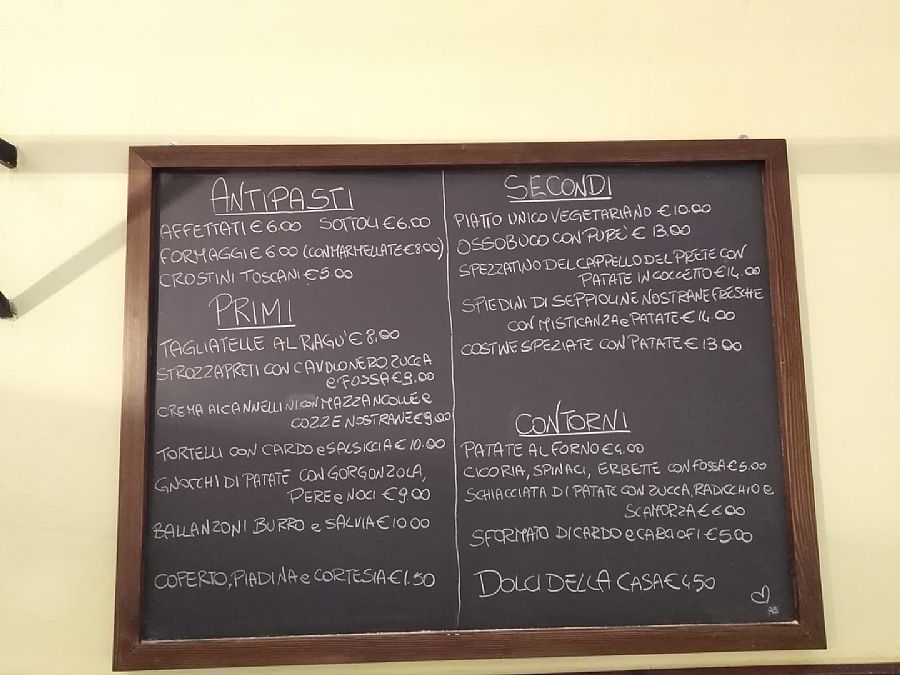 ANTIPASTI
AFFETTATI €6.00 SOTTOLI €6.00
FORMAGGI €6.00 (CON MARMELLATE €8.00)
CROSTINI TOSCANI €5.00
PRIMI
TAGLIATELLE AL RAGU' €8.00
STROZZAPRETI CON CAVOLO NERO, ZUCCA
e FOSSA €9.00
CREMA AI CANNELLINI CON MAZZANCOLLE e
COZZE NOSTRANE €9.00
TORTELLI CON CARDO e SALSICCIA €10.00
GNOCCHI DI PATATE CON GORGONZOLA,
PERE e NOCI €9.00
BALLANZONI BURRO e SALVIA €10.00
COPERTO, PIADINA e CORTESIA €1.50
SECONDI
PIATTO UNICO VEGETARIANO €10.00
OSSOBUCO CON PURE' €13.00
SPEZZATINO DEL CAPPELLO DEL PRETE CON
PATATE IN COCCETTO €14.00
SPIEDINI DI SEPPIOLINE NOSTRANE FRESCHE
CON MISTICANZA e PATATE €14.00
COSTINE SPEZIATE CON PATATE €13.00
CONTORNI
PATATE AL FORNO €4.00
CICORIA, SPINACI, ERBETTE CON FOSSA €5.00
SCHIACCIATA DI PATATE CON ZUCCA, RADICCHIO e
SCAMORZA €6.00
SFORMATO DI CARDO e CARCIOFI €5.00
DOLCI DELLA CASA €4.50